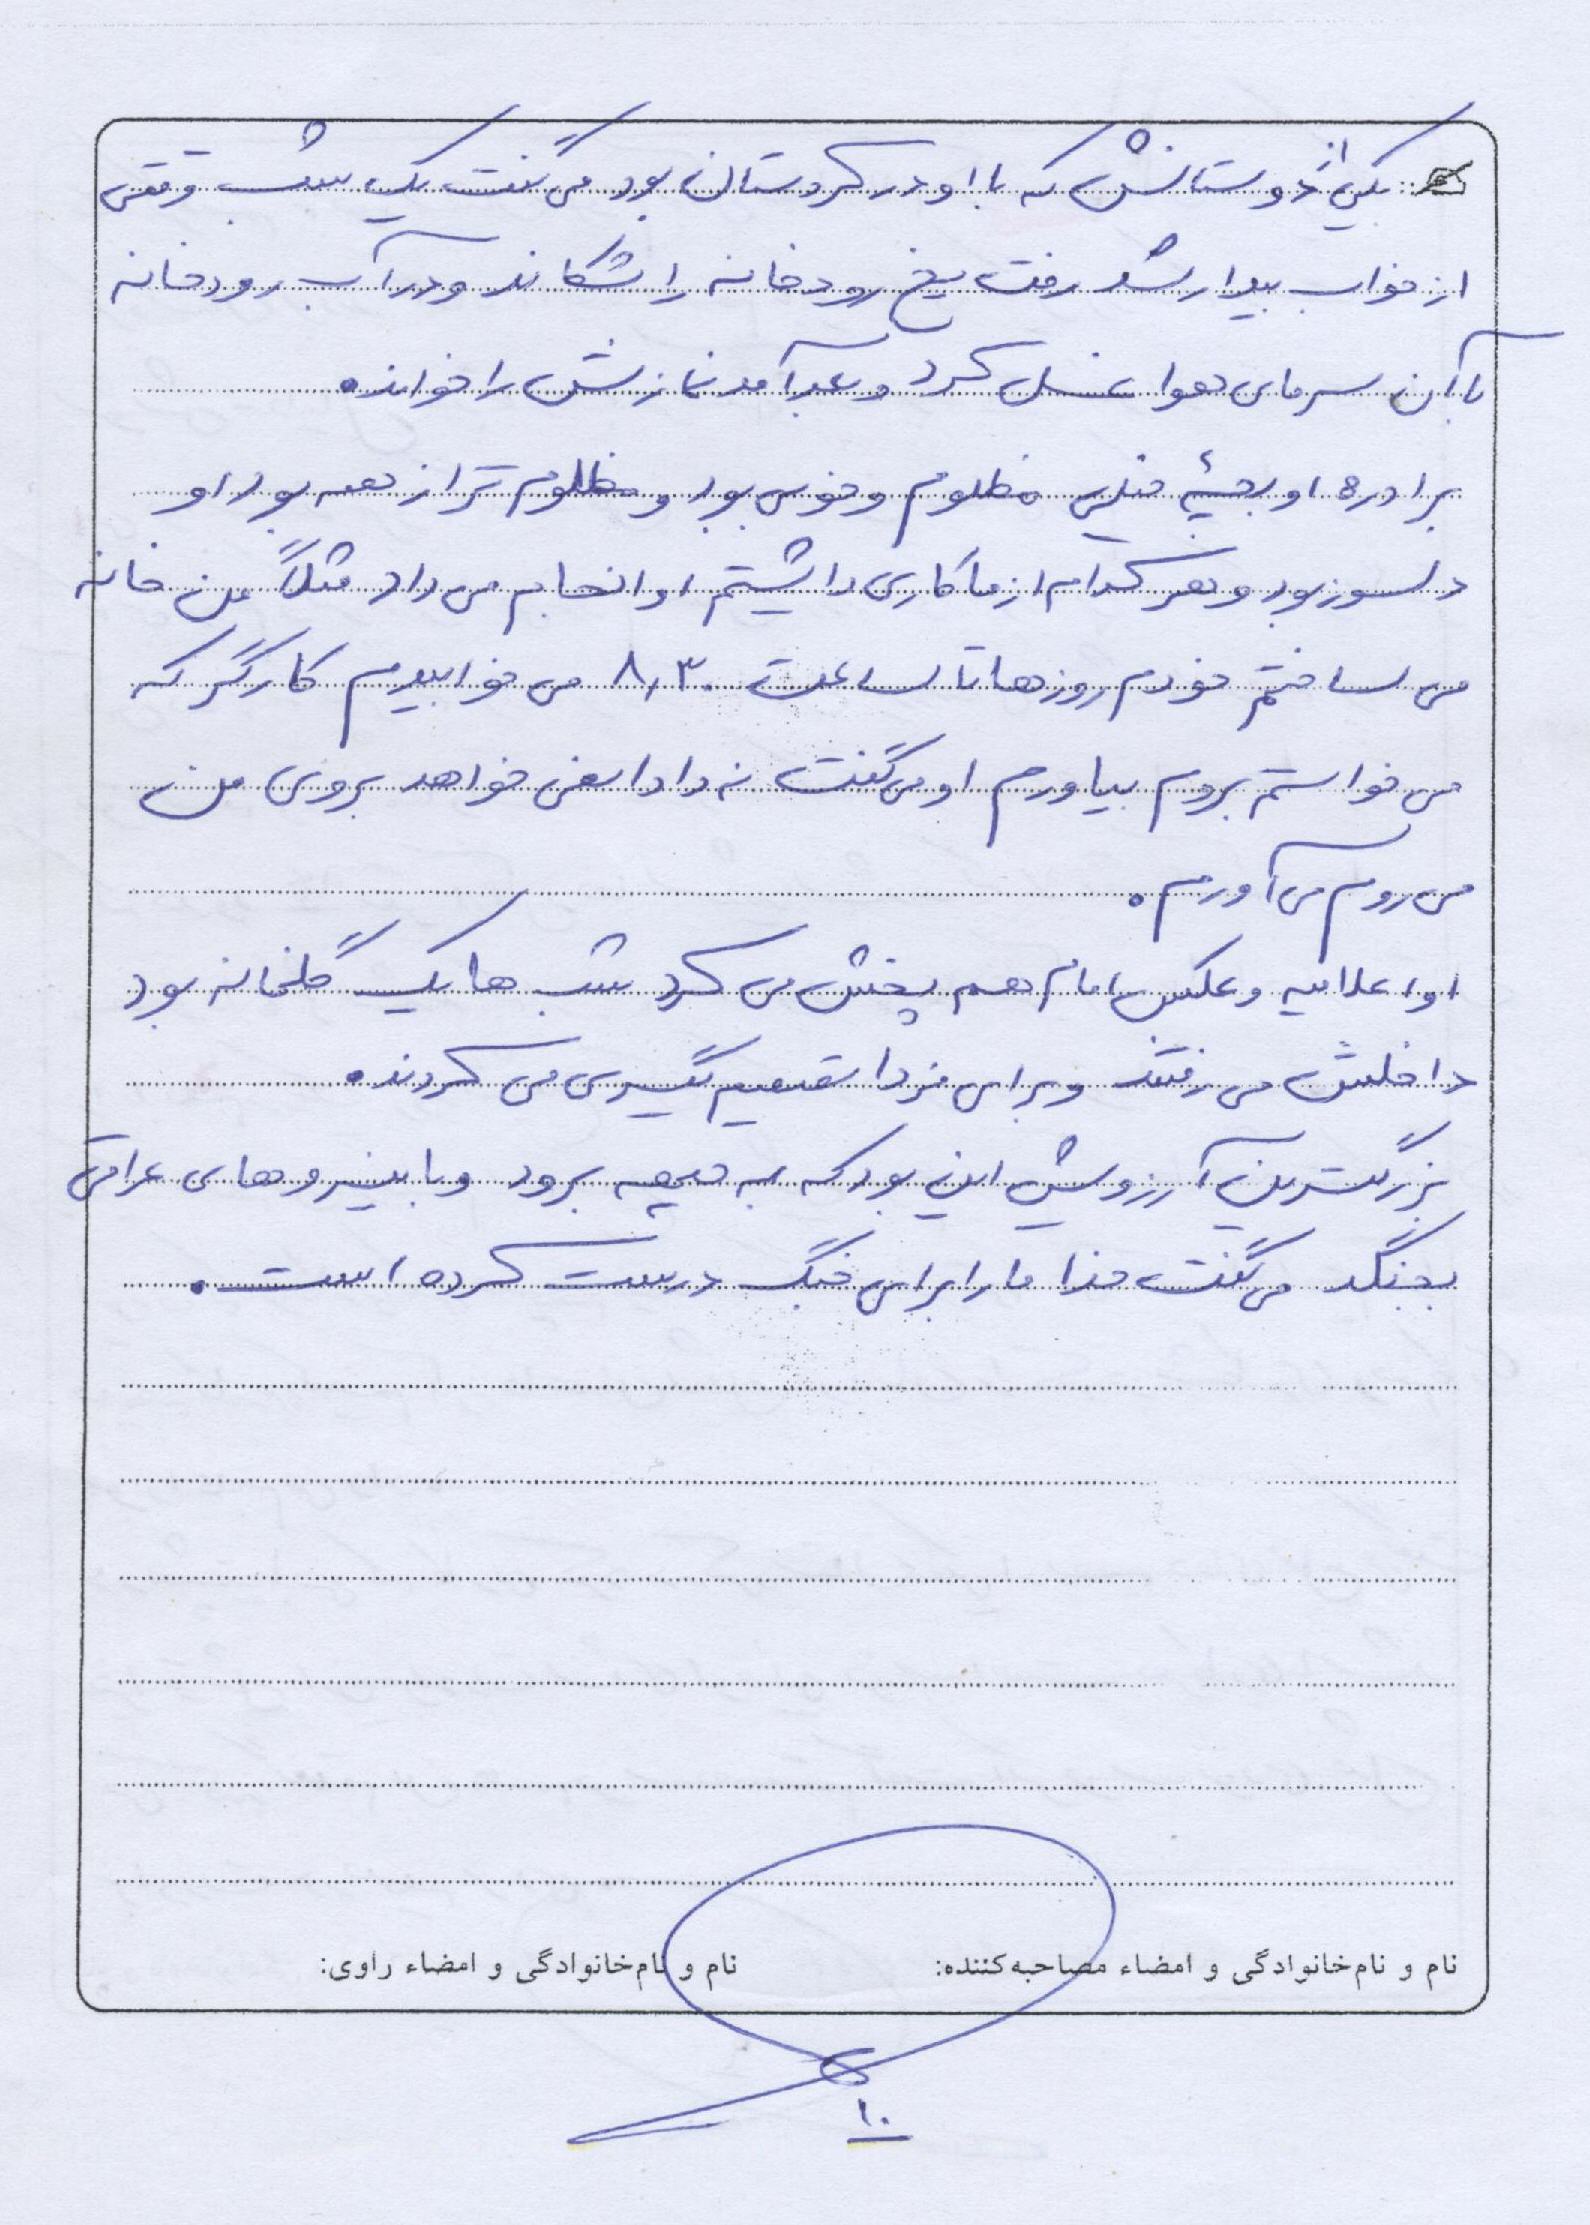 یکی از دوستانش که با او در کردستان بود می گفت یک شب وقتی
از خواب بیدار شد رفت یخ رودخانه را شکاند و در آب رودخانه
با آن سرمای هوا غسل کرد و بعد آمد نمازش را خواند.
برادره او بچیه خیلی مظلوم و خوبی بود و مظلوم تر از همه بود او
دلسوز بود و هر کدام از ما کاری داشتیم او انجام می داد مثلاً من خانه
می ساختم خودم روزها تا ساعت ۸,۳۰ می خوابیدم کارگر که
می خواستم بروم بیاورم او می گفت نه دادا نمی خواهد بروی من
می روم می آورم.
او اعلامیه و عکس امام هم پخش می کرد شب ها یک گلخانه بود
داخلش می رفتند و برای فردا تصمیم گیری می کردند.
بزرگترین آرزویش این بود که به جبهه برود و با نیروهای عراقی
بجنگد می گفت خدا ما را برای جنگ درست کرده است.
نام و نام‌خانوادگی و امضاء مصاحبه‌کننده: نام و نام‌خانوادگی و امضاء راوی:
۱۰